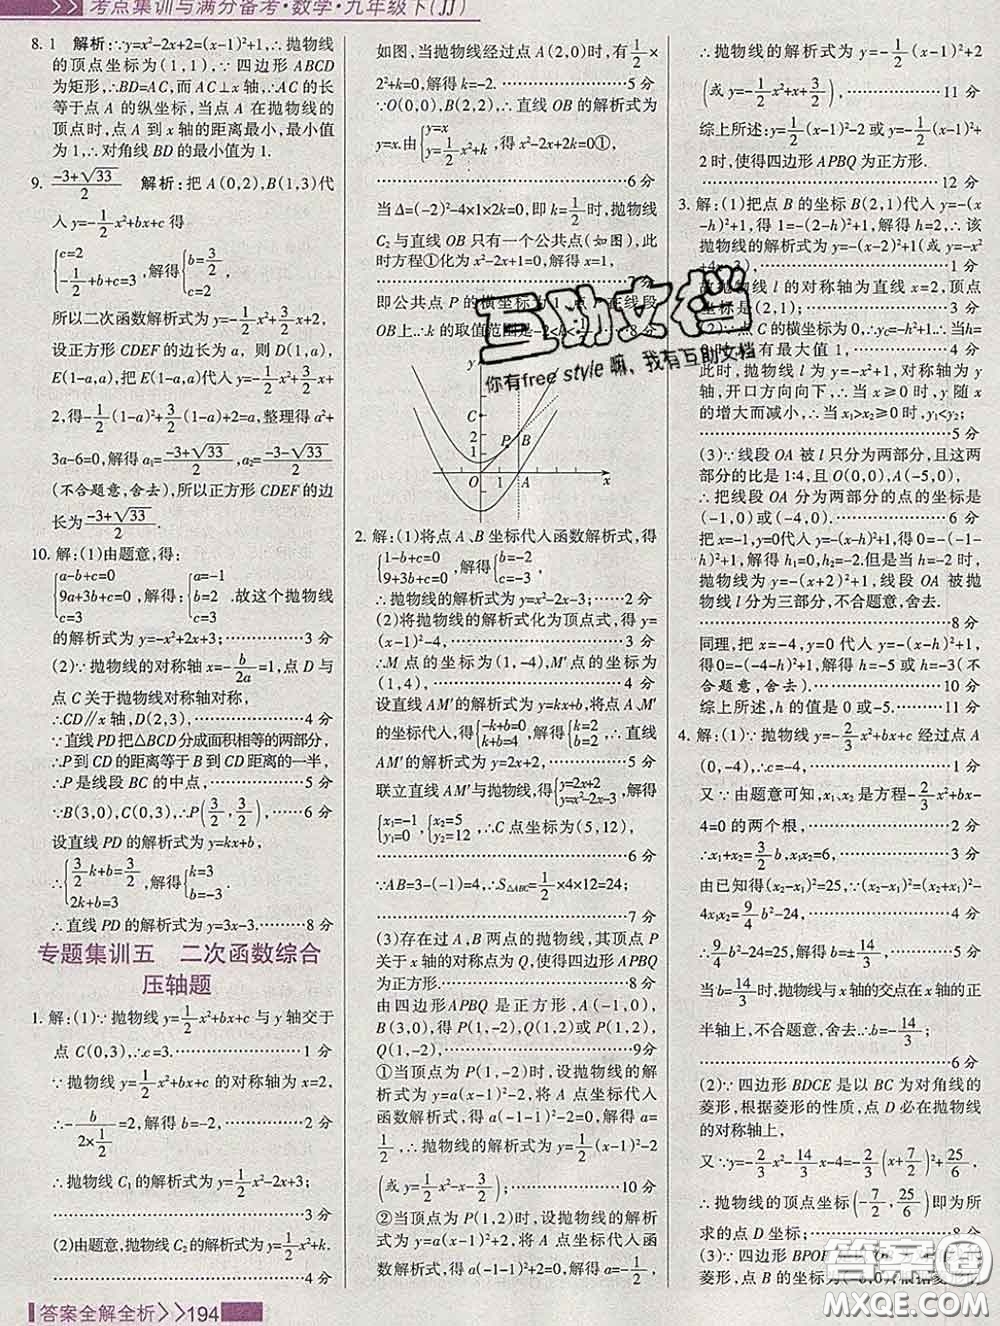 考点集训与满分备考·数学·九年级下(JJ)
8. 1 解析:∵y=x²-2x+2=(x-1)²+1,∴抛物线
的顶点坐标为(1,1),∵四边形ABCD
为矩形,∴BD=AC,而AC⊥x轴,∴AC的长
等于点A的纵坐标,当点A在抛物线的
顶点时,点A到x轴的距离最小,最小值
为1,∴对角线BD的最小值为1.
9. (-3+√33)/2 解析:把A(0,2),B(1,3)代
入y=-1/2x²+bx+c得
{c=2
-1/2+b+c=3,解得{b=3/2
c=2,
所以二次函数解析式为y=-1/2x²+3/2x+2,
设正方形CDEF的边长为a,则D(1,a),
E(1-a,a),把E(1-a,a)代入y=-1/2x²+3/2x+
2,得-1/2(1-a)²+3/2(1-a)+2=a,整理得a²+
3a-6=0,解得a₁=(-3+√33)/2,a₂=(-3-√33)/2
(不合题意,舍去),所以正方形CDEF的边
长为(-3+√33)/2.
10. 解:(1)由题意,得:
{a-b+c=0
9a+3b+c=0
c=3,解得:{a=-1
b=2
c=3.故这个抛物线
的解析式为y=-x²+2x+3;……3分
(2)∵抛物线的对称轴x=-b/2a=1,点D与
点C关于抛物线对称轴对称,
∴CD∥x轴,D(2,3),……4分
∵直线PD把△BCD分成面积相等的两部分,
∴P到CD的距离等于B到CD的距离的一半,
∴P是线段BC的中点,……5分
∵B(3,0),C(0,3),∴P(3/2,3/2),……6分
设直线PD的解析式为y=kx+b,
∴{3/2k+b=3/2
2k+b=3,解得{k=3
b=-3.
∴直线PD的解析式为y=3x-3.……8分
专题集训五 二次函数综合
压轴题
1. 解:(1)∵抛物线y=1/2x²+bx+c与y轴交于
点C(0,3),∴c=3.……1分
∵抛物线y=1/2x²+bx+c的对称轴为x=2,
∴-b/(2×1/2)=2,解得b=-2,……2分
∴抛物线C₁的解析式为y=1/2x²-2x+3;
……3分
(2)由题意,抛物线C₂的解析式为y=1/2x²+k.
……4分
如图,当抛物线经过点A(2,0)时,有1/2×
2²+k=0,解得k=-2.……5分
∵O(0,0),B(2,2),∴直线OB的解析式为
y=x.由{y=x
y=1/2x²+k,得x²-2x+2k=0①,
……6分
当Δ=(-2)²-4×1×2k=0,即k=1/2时,抛物线
C₂与直线OB只有一个公共点(如图),此
时方程①化为x²-2x+1=0,解得x=1,
即公共点P的横坐标为1,点P在线段
OB上.∴k的取值范围是-2<k<1/2.……8分
y
C
2
1
P
B
O
1
A
x
2. 解:(1)将点A、B坐标代入函数解析式,得
{1-b+c=0
9+3b+c=0,解得{b=-2
c=-3,
∴抛物线的解析式为y=x²-2x-3;……2分
(2)将抛物线的解析式化为顶点式,得y=
(x-1)²-4,……3分
∴M点的坐标为(1,-4),M′点的坐标为
(1,4),……4分
设直线AM′的解析式为y=kx+b,将点A、M′
点的坐标代入,得{-k+b=0
k+b=4,解得{k=2
b=2,∴直线
AM′的解析式为y=2x+2,……5分
联立直线AM′与抛物线,得{y=2x+2
y=x²-2x-3,解得
{x₁=-1
y₁=0,{x₂=5
y₂=12,∴C点坐标为(5,12),
……6分
∵AB=3-(-1)=4,∴S△ABC=1/2×4×12=24;
……7分
(3)存在过A、B两点的抛物线,其顶点P
关于x轴的对称点为Q,使得四边形APBQ
为正方形.……8分
由四边形APBQ是正方形,A(-1,0),
B(3,0),得P(1,-2),Q(1,2)或P(1,2),
Q(1,-2),……9分
①当顶点为P(1,-2)时,设抛物线的解析
式为y=a(x-1)²-2,将A点坐标代入
函数解析式,得a(-1-1)²-2=0,解得a=
1/2,∴抛物线的解析式为y=1/2(x-1)²-2
(或y=1/2x²-x-3/2),……10分
②当顶点为P(1,2)时,设抛物线的解析
式为y=a(x-1)²+2,将A点坐标代入
函数解析式,得a(-1-1)²+2=0,解得a=-1/2,
∴抛物线的解析式为y=-1/2(x-1)²+2
(或y=-1/2x²+x+3/2),……11分
综上所述:y=1/2(x-1)²-2或y=-1/2(x-1)²+
2时,使得四边形APBQ为正方形.
……12分
3. 解:(1)把点B的坐标B(2,1)代入y=-(x
-h)²+1,得1=-(2-h)²+1,解得h=2,∴该
抛物线的解析式为y=-(x-2)²+1(或y=-x²
+4x-3),……1分
故抛物线l的对称轴为直线x=2,顶点
坐标是(2,1);……2分
(2)∵点C的横坐标为0,∴yc=-h²+1,当h=
0时,yc有最大值1,……4分
此时,抛物线l为y=-x²+1,对称轴为y
轴,开口方向向下,∴当x≥0时,y随x
的增大而减小,∴当x₁>x₂≥0时,y₁<y₂;
……5分
(3)∵线段OA被l只分为两部分,且这
两部分的比是1:4,且O(0,0),A(-5,0),
∴把线段OA分为两部分的点的坐标是
(-1,0)或(-4,0).……6分
把x=-1,y=0代入y=-(x-h)²+1,得0=-(-1-
h)²+1,解得h₁=0,h₂=-2.但是当h=-2时,
抛物线为y=-(x+2)²+1,线段OA被抛
物线l分为三部分,不合题意,舍去.
……8分
同理,把x=-4,y=0代入y=-(x-h)²+1,
得0=-(-4-h)²+1,解得h=-5或h=-3(不
合题意,舍去).……10分
综上所述,h的值是0或-5.……11分
4. 解:(1)∵抛物线y=-2/3x²+bx+c经过点A
(0,-4),∴c=-4,……1分
又∵由题意可知,x₁、x₂是方程-2/3x²+bx-
4=0的两个根,……2分
∴x₁+x₂=3/2b,x₁x₂=6,……3分
由已知得(x₂-x₁)²=25,∴(x₂-x₁)²=(x₂+x₁)²-
4x₁x₂=9/4b²-24,……4分
∴9/4b²-24=25,解得b=±14/3,……5分
当b=14/3时,抛物线与x轴的交点在x轴的正
半轴上,不合题意,舍去.∴b=-14/3;
……6分
(2)∵四边形BDCE是以BC为对角线的
菱形,根据菱形的性质,点D必在抛物线
的对称轴上,
又∵y=-2/3x²-14/3x-4=-2/3(x+7/2)²+25/6,
∴抛物线的顶点坐标(-7/2,25/6)即为所
求的点D坐标;……8分
答案全解全析>>194
互助文档
你有free style嘛、我有互助文档
答案圈
MXQE.COM